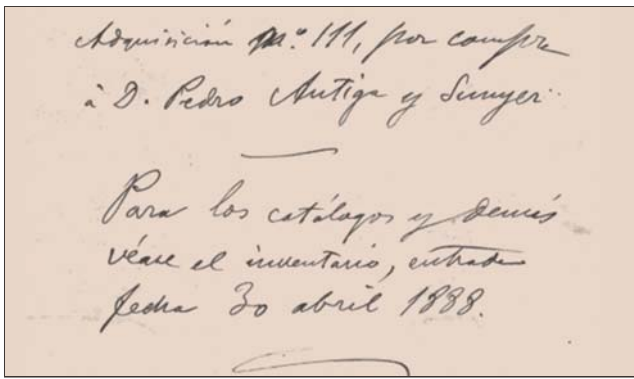 Adquisición n.º 111, por compra
à D. Pedro Antiga y Sunyer.
Para los catálogos y demás
véase el inventario, entrada
fecha 30 abril 1888.